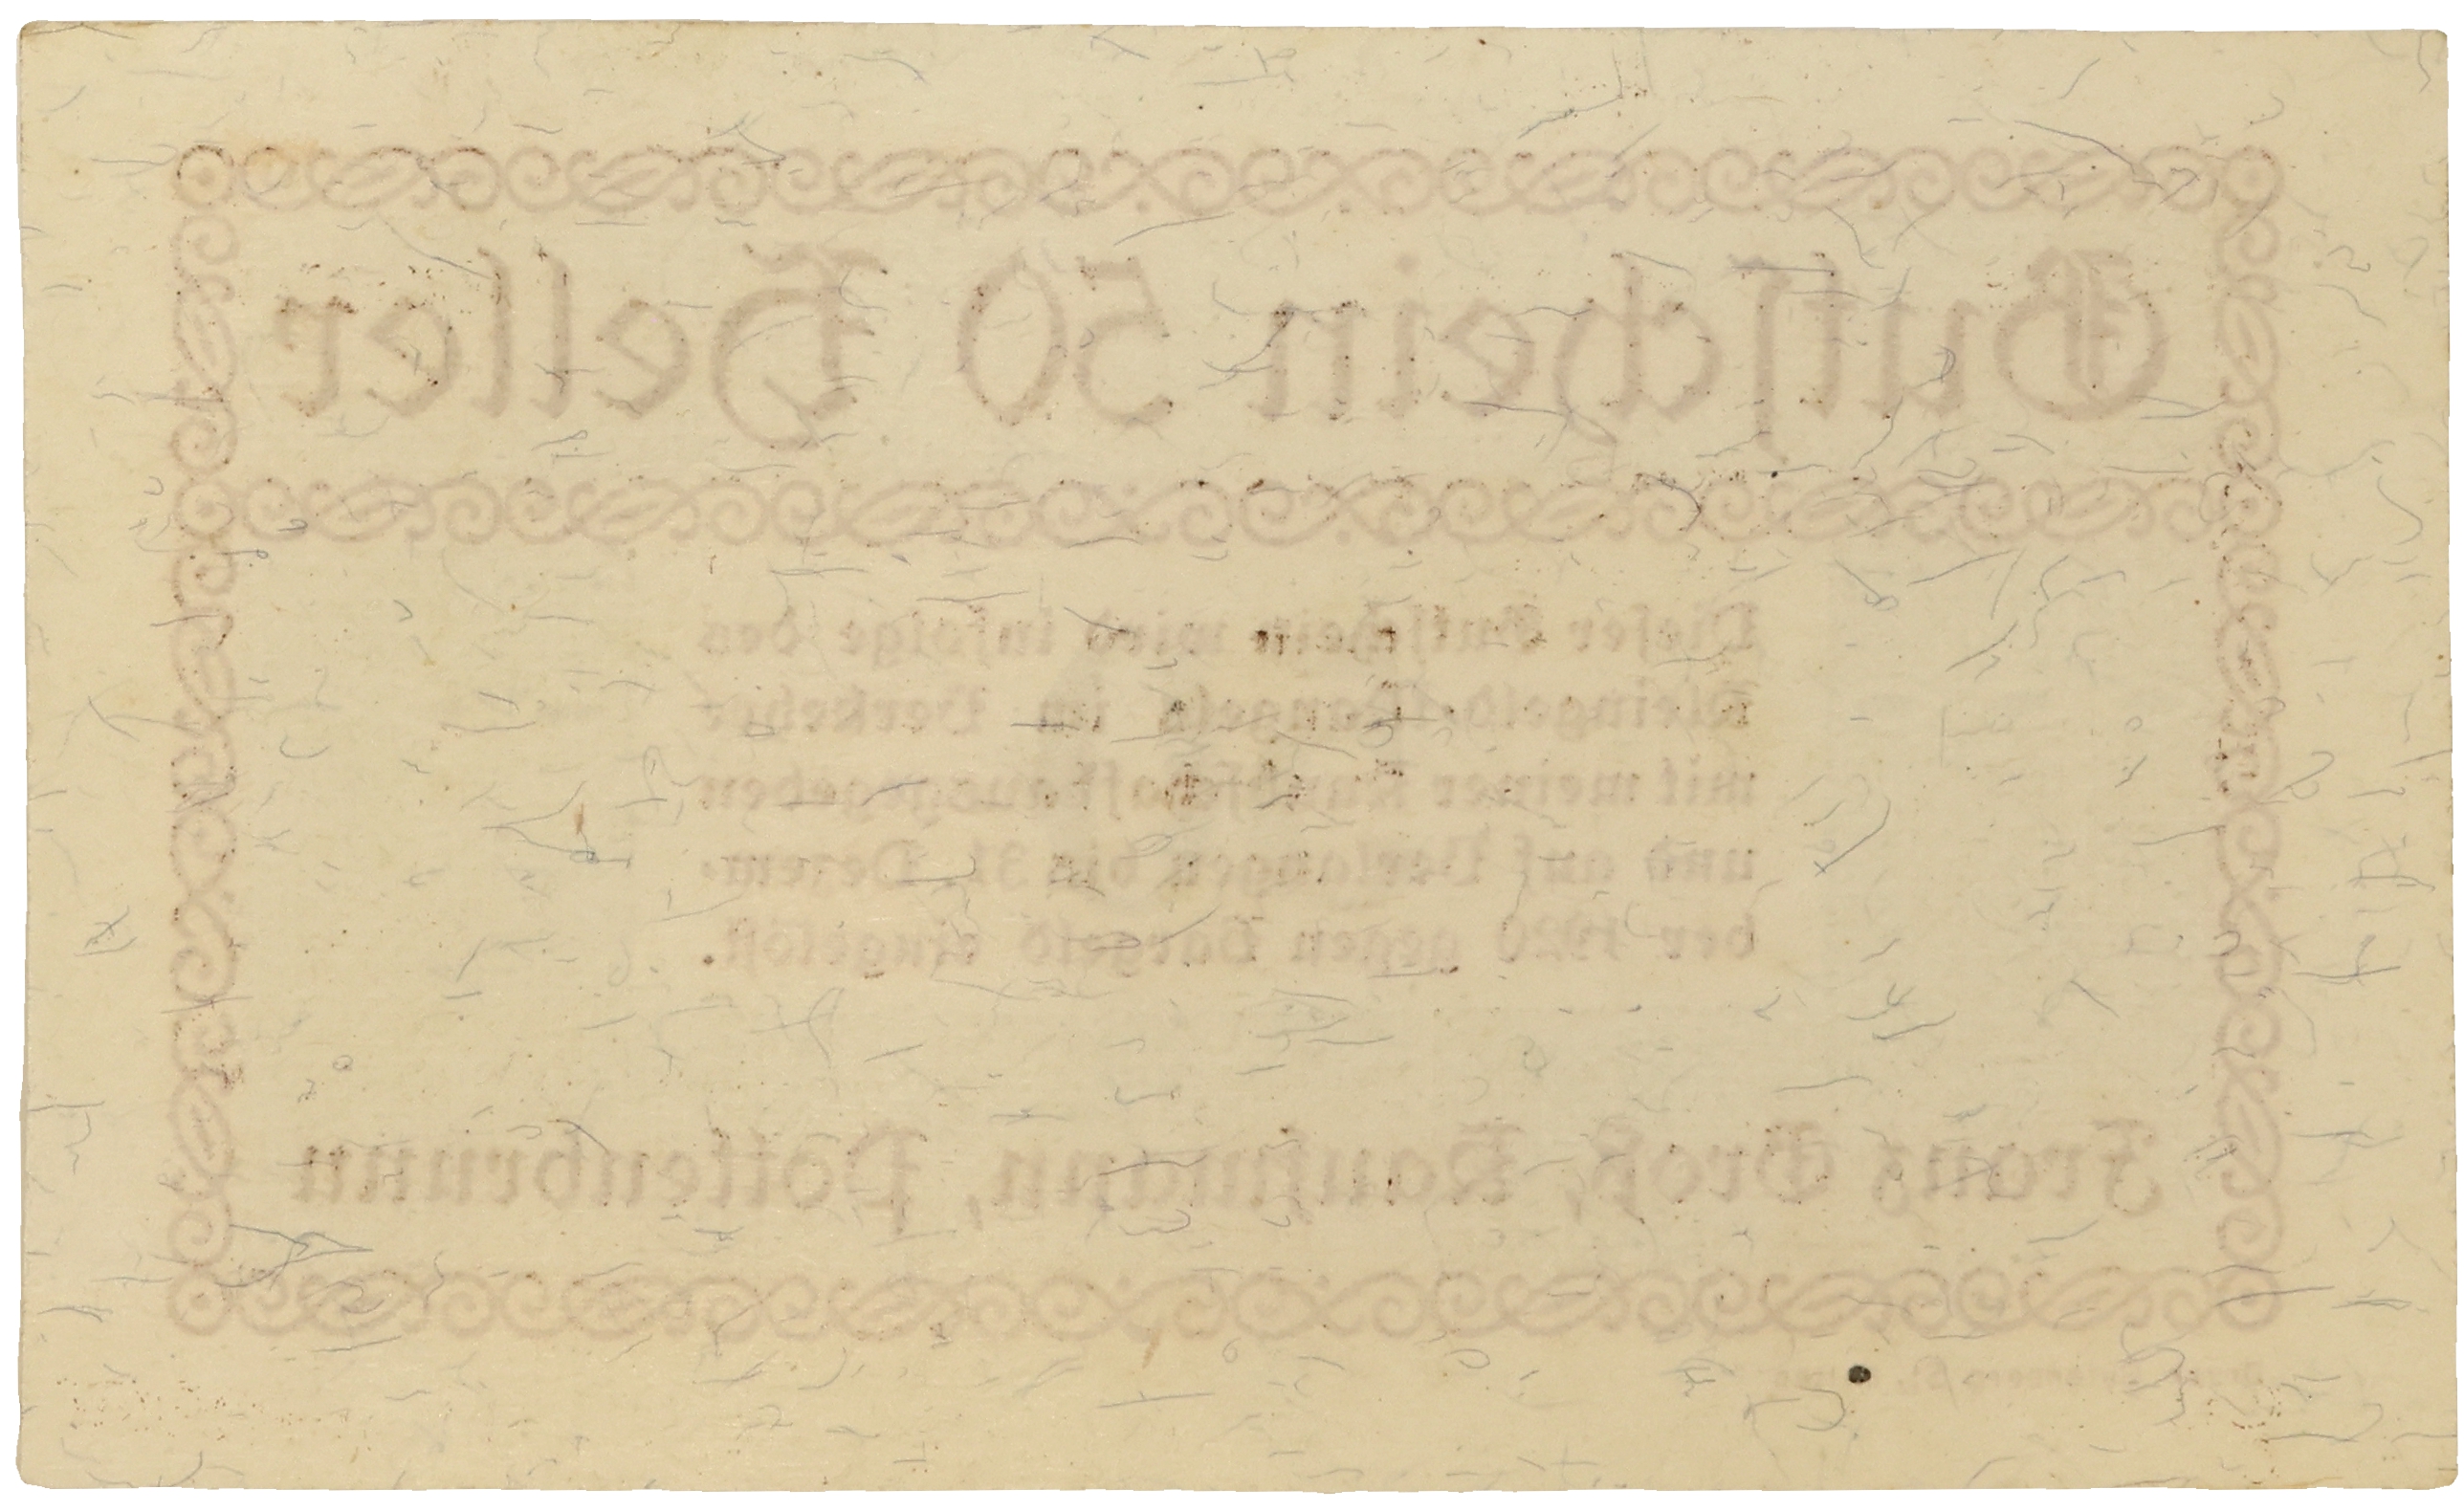 Gutschein 50 Heller
Dieser Gutschein wird infolge des
Kleingeld-Mangels im Verkehre
mit meiner Kundschaft ausgegeben
und auf Verlangen bis 31. Dezem-
ber 1920 gegen Bargeld eingelöst.
Franz Groß, Kaufmann, Pottenbrunn